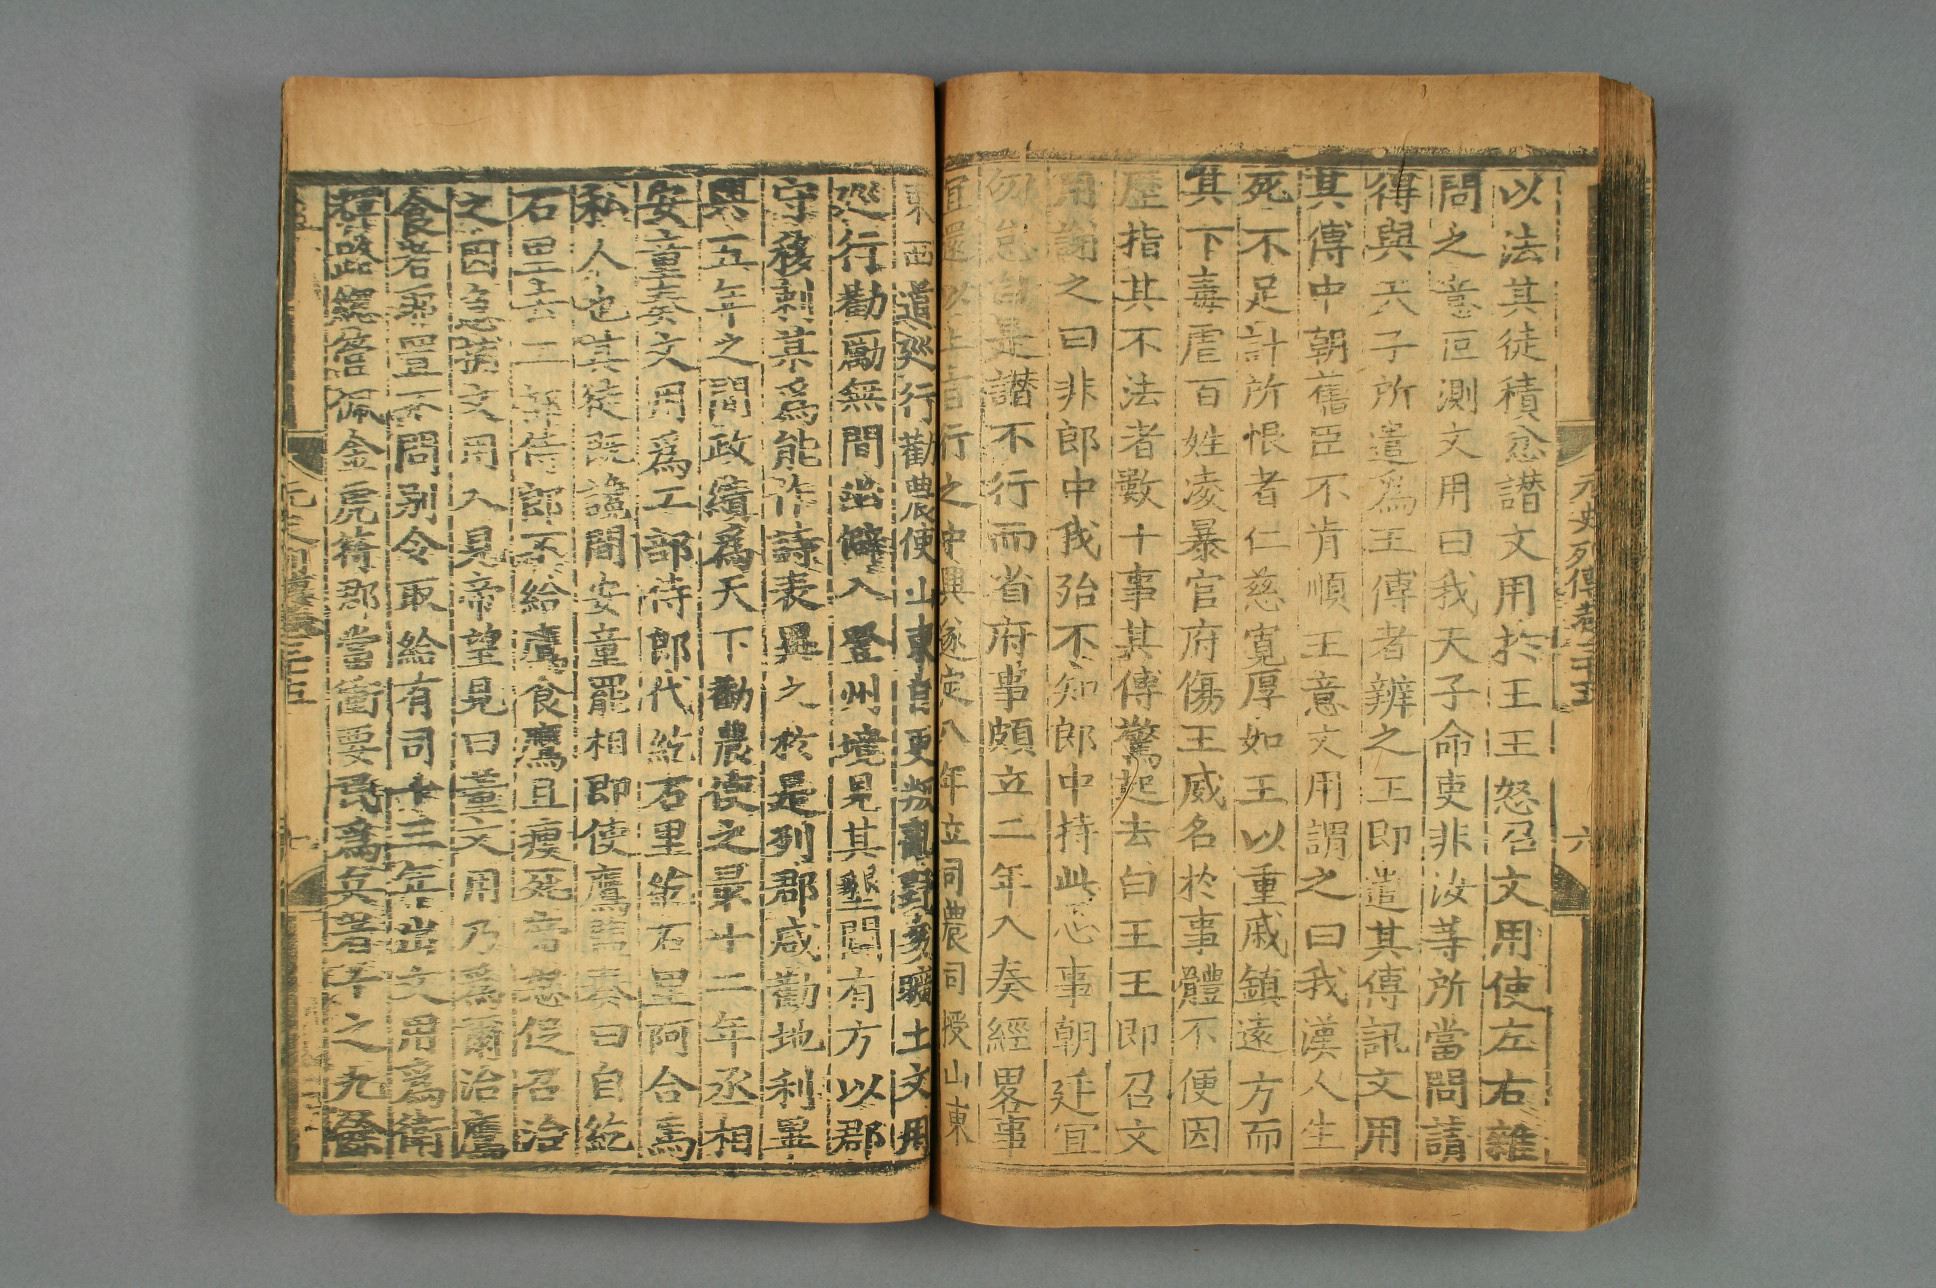 以法其徒積忿譖文用於王王怒召文用使左右雜
問之意叵測文用曰我天子命吏非汝等所當問請
得與天子所遣爲王傅者辨之王即遣其傅訊文用
其傅中朝舊臣不肯順王意文用謂之曰我漢人生
死不足計所恨者仁慈寬厚如王以重戚鎮遠方而
其下毒虐百姓凌暴官府傷王威名於事體不便因
歷指其不法者數十事其傅驚起去白王王即召文
用謝之曰非郎中我殆不知郎中持此心事朝廷宜
勿怠自是譖不行而省府事頗立二年入奏經畧事
宜還以上旨行之中興遂定八年立司農司授山東
東西道巡行勸農使山東自更叛亂野多曠土文用
巡行勸勵無間幽僻入登州境見其墾闢有方以郡
守移剌某爲能作詩表異之於是列郡咸勸地利畢
興五年之間政績爲天下勸農使之最十二年丞相
安童奏文用爲工部侍郎代紇石里紇石里阿合馬
私人也其徒既讒間安童罷相即使鷹監奏曰自紇
石里去工部侍郎不給鷹食鷹且瘦死帝怒促召治
之因急捕文用入見帝望見曰董文用乃爲爾治鷹
食者耶置不問別令取給有司十三年出文用爲衛
輝路總管佩金虎符郡當衝要民爲兵者十之九餘
元史列傳卷三十五
六
元史列傳卷三十五
七